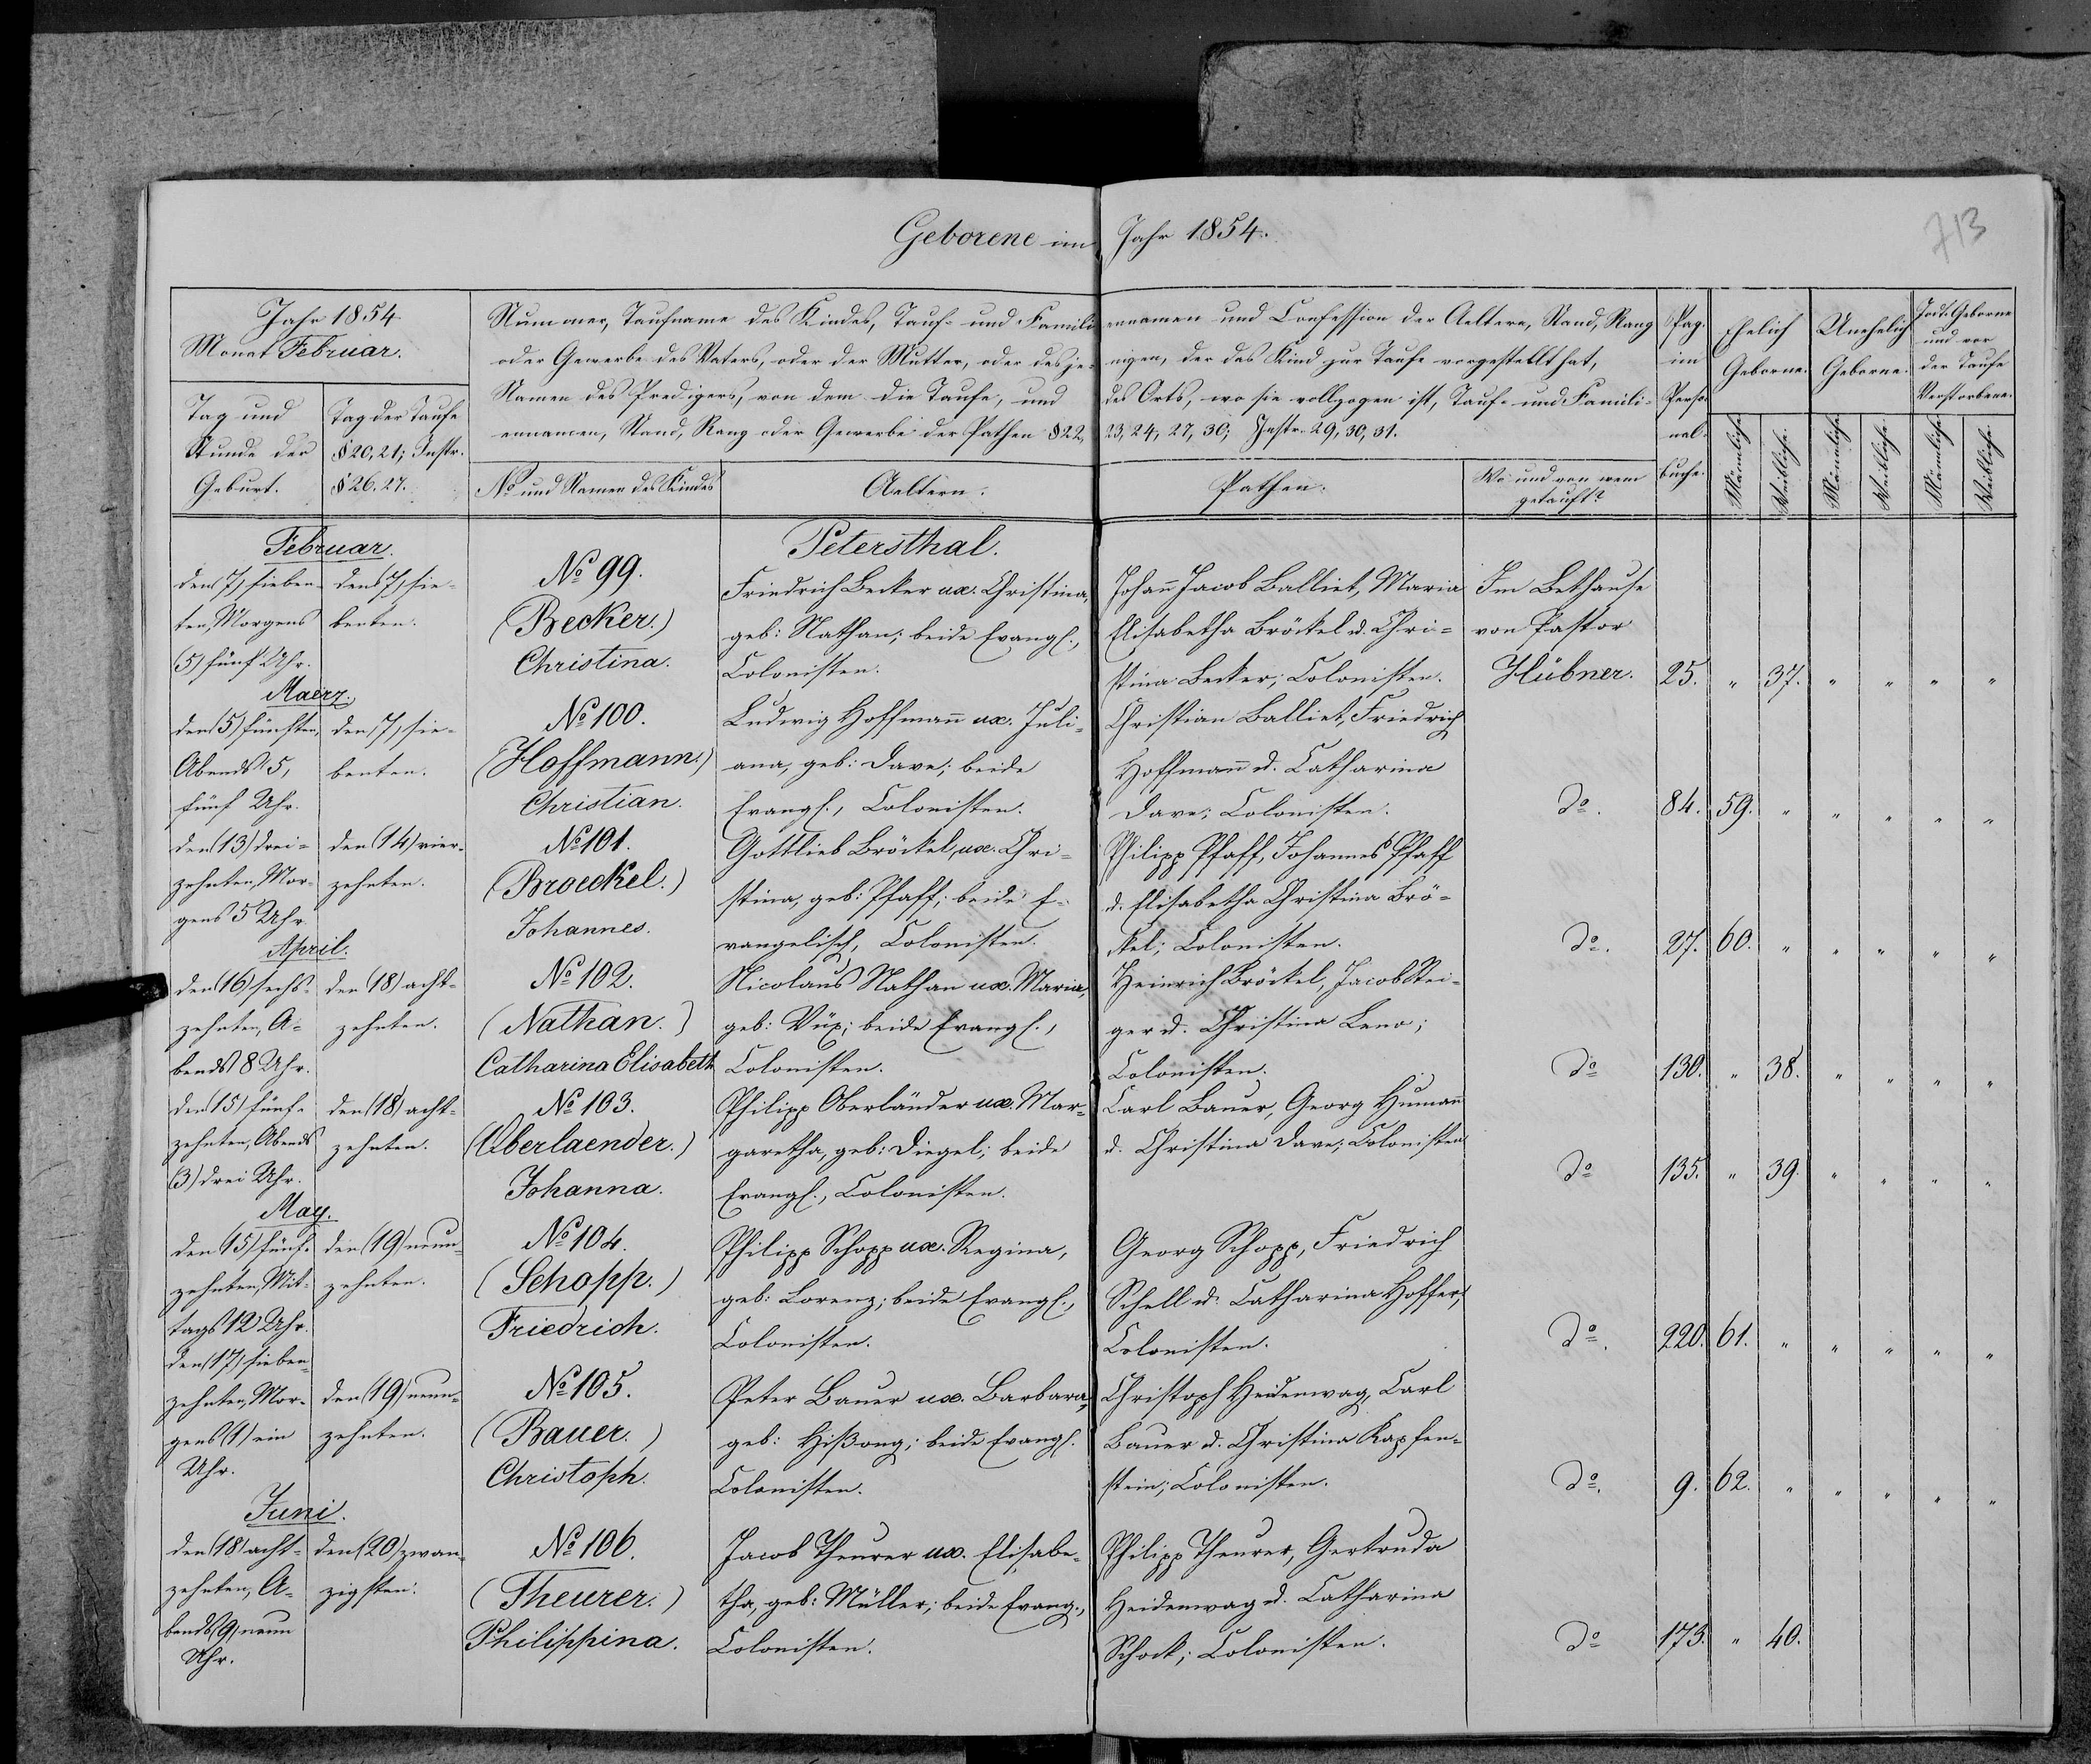 713
Geborene im Jahr 1854.
Jahr 1854
Monat Februar.
Tag und
Stunde der
Geburt.
Tag der Taufe
§ 20, 21; Instr.
§ 26. 27.
Nummer, Taufname des Kindes, Tauf- und Familiennamen und Confession der Aeltern, Stand, Rang
oder Gewerbe des Vaters, oder der Mutter, oder desjenigen, der das Kind zur Taufe vorgestellt hat,
Namen des Predigers, von dem die Taufe, und des Orts, wo sie vollzogen ist, Tauf- und Famili-
ennamen, Stand, Rang oder Gewerbe der Pathen § 22, 23, 24, 27, 30; Instr. 29, 30, 31.
No und Namen des Kindes
Aeltern.
Pathen.
Wo und von wem
getauft?
Pag.
im
Perso-
nal-
buche.
Ehelich
Geborne.
Unehelich
Geborne.
Todt Geborne
und vor
der Taufe
Verstorbene.
Männliche.
Weibliche.
Männliche.
Weibliche.
Männliche.
Weibliche.
Petersthal.
Februar.
den (7) sieben-
ten, Morgens
(5) fünf Uhr.
den (7) sie-
benten.
No 99.
(Becker.)
Christina.
Friedrich Becker ux. Christina,
geb: Nathan; beide Evangl.,
Colonisten.
Johann Jacob Balliet, Maria
Elisabetha Bröckel u. Chri-
stina Becker; Colonisten.
Im Bethause
von Pastor
Hübner.
25. " 37. " " " "
Maerz.
den (5) fünften,
Abends 5,
fünf Uhr.
den (7) sie-
benten.
No 100.
(Hoffmann.)
Christian.
Ludwig Hoffmann ux. Juli-
ana, geb: Dare; beide
Evangl., Colonisten.
Christian Balliet, Friedrich
Hoffmann u. Catharina
Dare; Colonisten.
do. 84. 59. " " " " "
den (13) drei-
zehnten, Mor-
gens 5 Uhr.
den (14) vier-
zehnten.
No 101.
(Broeckel.)
Johannes.
Gottlieb Bröckel, ux. Chri-
stina, geb: Pfaff; beide E-
vangelisch, Colonisten.
Philipp Pfaff, Johannes Pfaff
u. Elisabetha Christina Brö-
ckel; Colonisten.
do. 27. 60. " " " " "
April.
den (16) sechs-
zehnten, A-
bends 8 Uhr.
den (18) acht-
zehnten.
No 102.
(Nathan.)
Catharina Elisabeth
Nicolaus Nathan ux. Maria,
geb: Vüx; beide Evangl.,
Colonisten.
Heinrich Bröckel, Jacob Stei-
ger u. Christina Leno;
Colonisten.
do 130. " 38. " " " "
den (15) fünf-
zehnten, Abends
(3) drei Uhr.
den (18) acht-
zehnten.
No 103.
(Oberlaender.)
Johanna.
Philipp Oberländer ux. Mar-
garetha, geb: Diegel; beide
Evangl., Colonisten.
Carl Bauer, Georg Humann
u. Christina Dare; Colonisten
do 135. " 39. " " " "
May.
den (15) fünf-
zehnten, Mit-
tags 12 Uhr.
den (19) neun-
zehnten.
No 104.
(Schopp.)
Friedrich.
Philipp Schopp ux. Regina,
geb: Lorenz; beide Evangl.,
Colonisten.
Georg Schopp, Friedrich
Schell u. Catharina Hoffer,
Colonisten.
do. 220. 61. " " " " "
den (17) sieben-
zehnten, Mor-
gens (1) ein
Uhr.
den (19) neun-
zehnten.
No 105.
(Bauer.)
Christoph.
Peter Bauer ux. Barbara,
geb: Hißong; beide Evangl.
Colonisten.
Christoph Heidenwag, Carl
Bauer u. Christina Kapfen-
stein; Colonisten.
do. 9. 62. " " " " "
Juni.
den (18) acht-
zehnten, A-
bends (9) neun
Uhr.
den (20) zwan-
zigsten.
No 106.
(Theurer.)
Philippina.
Jacob Theurer ux. Elisabe-
tha, geb: Müller; beide Evang.,
Colonisten.
Philipp Theurer, Gertruda
Heidenwag u. Catharina
Schock; Colonisten.
do 173. " 40.